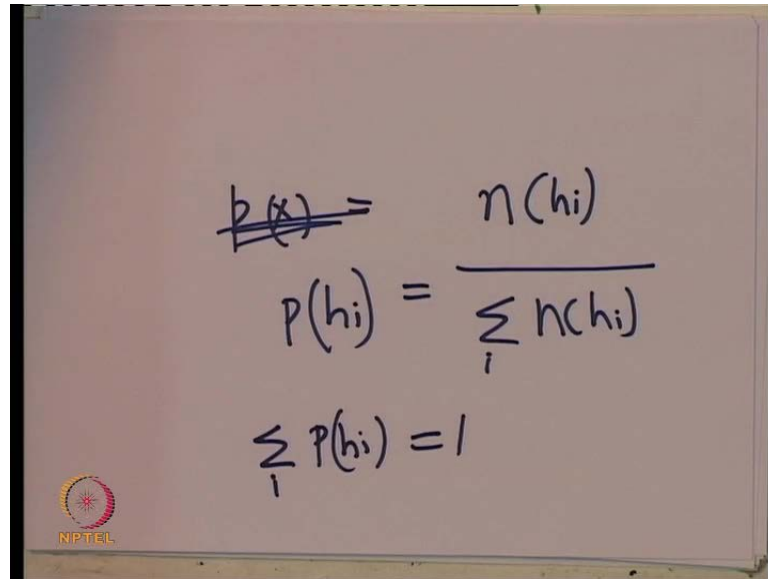 p(x) =
p(hi) = n(hi) / Σi n(hi)
Σi p(hi) = 1
NPTEL